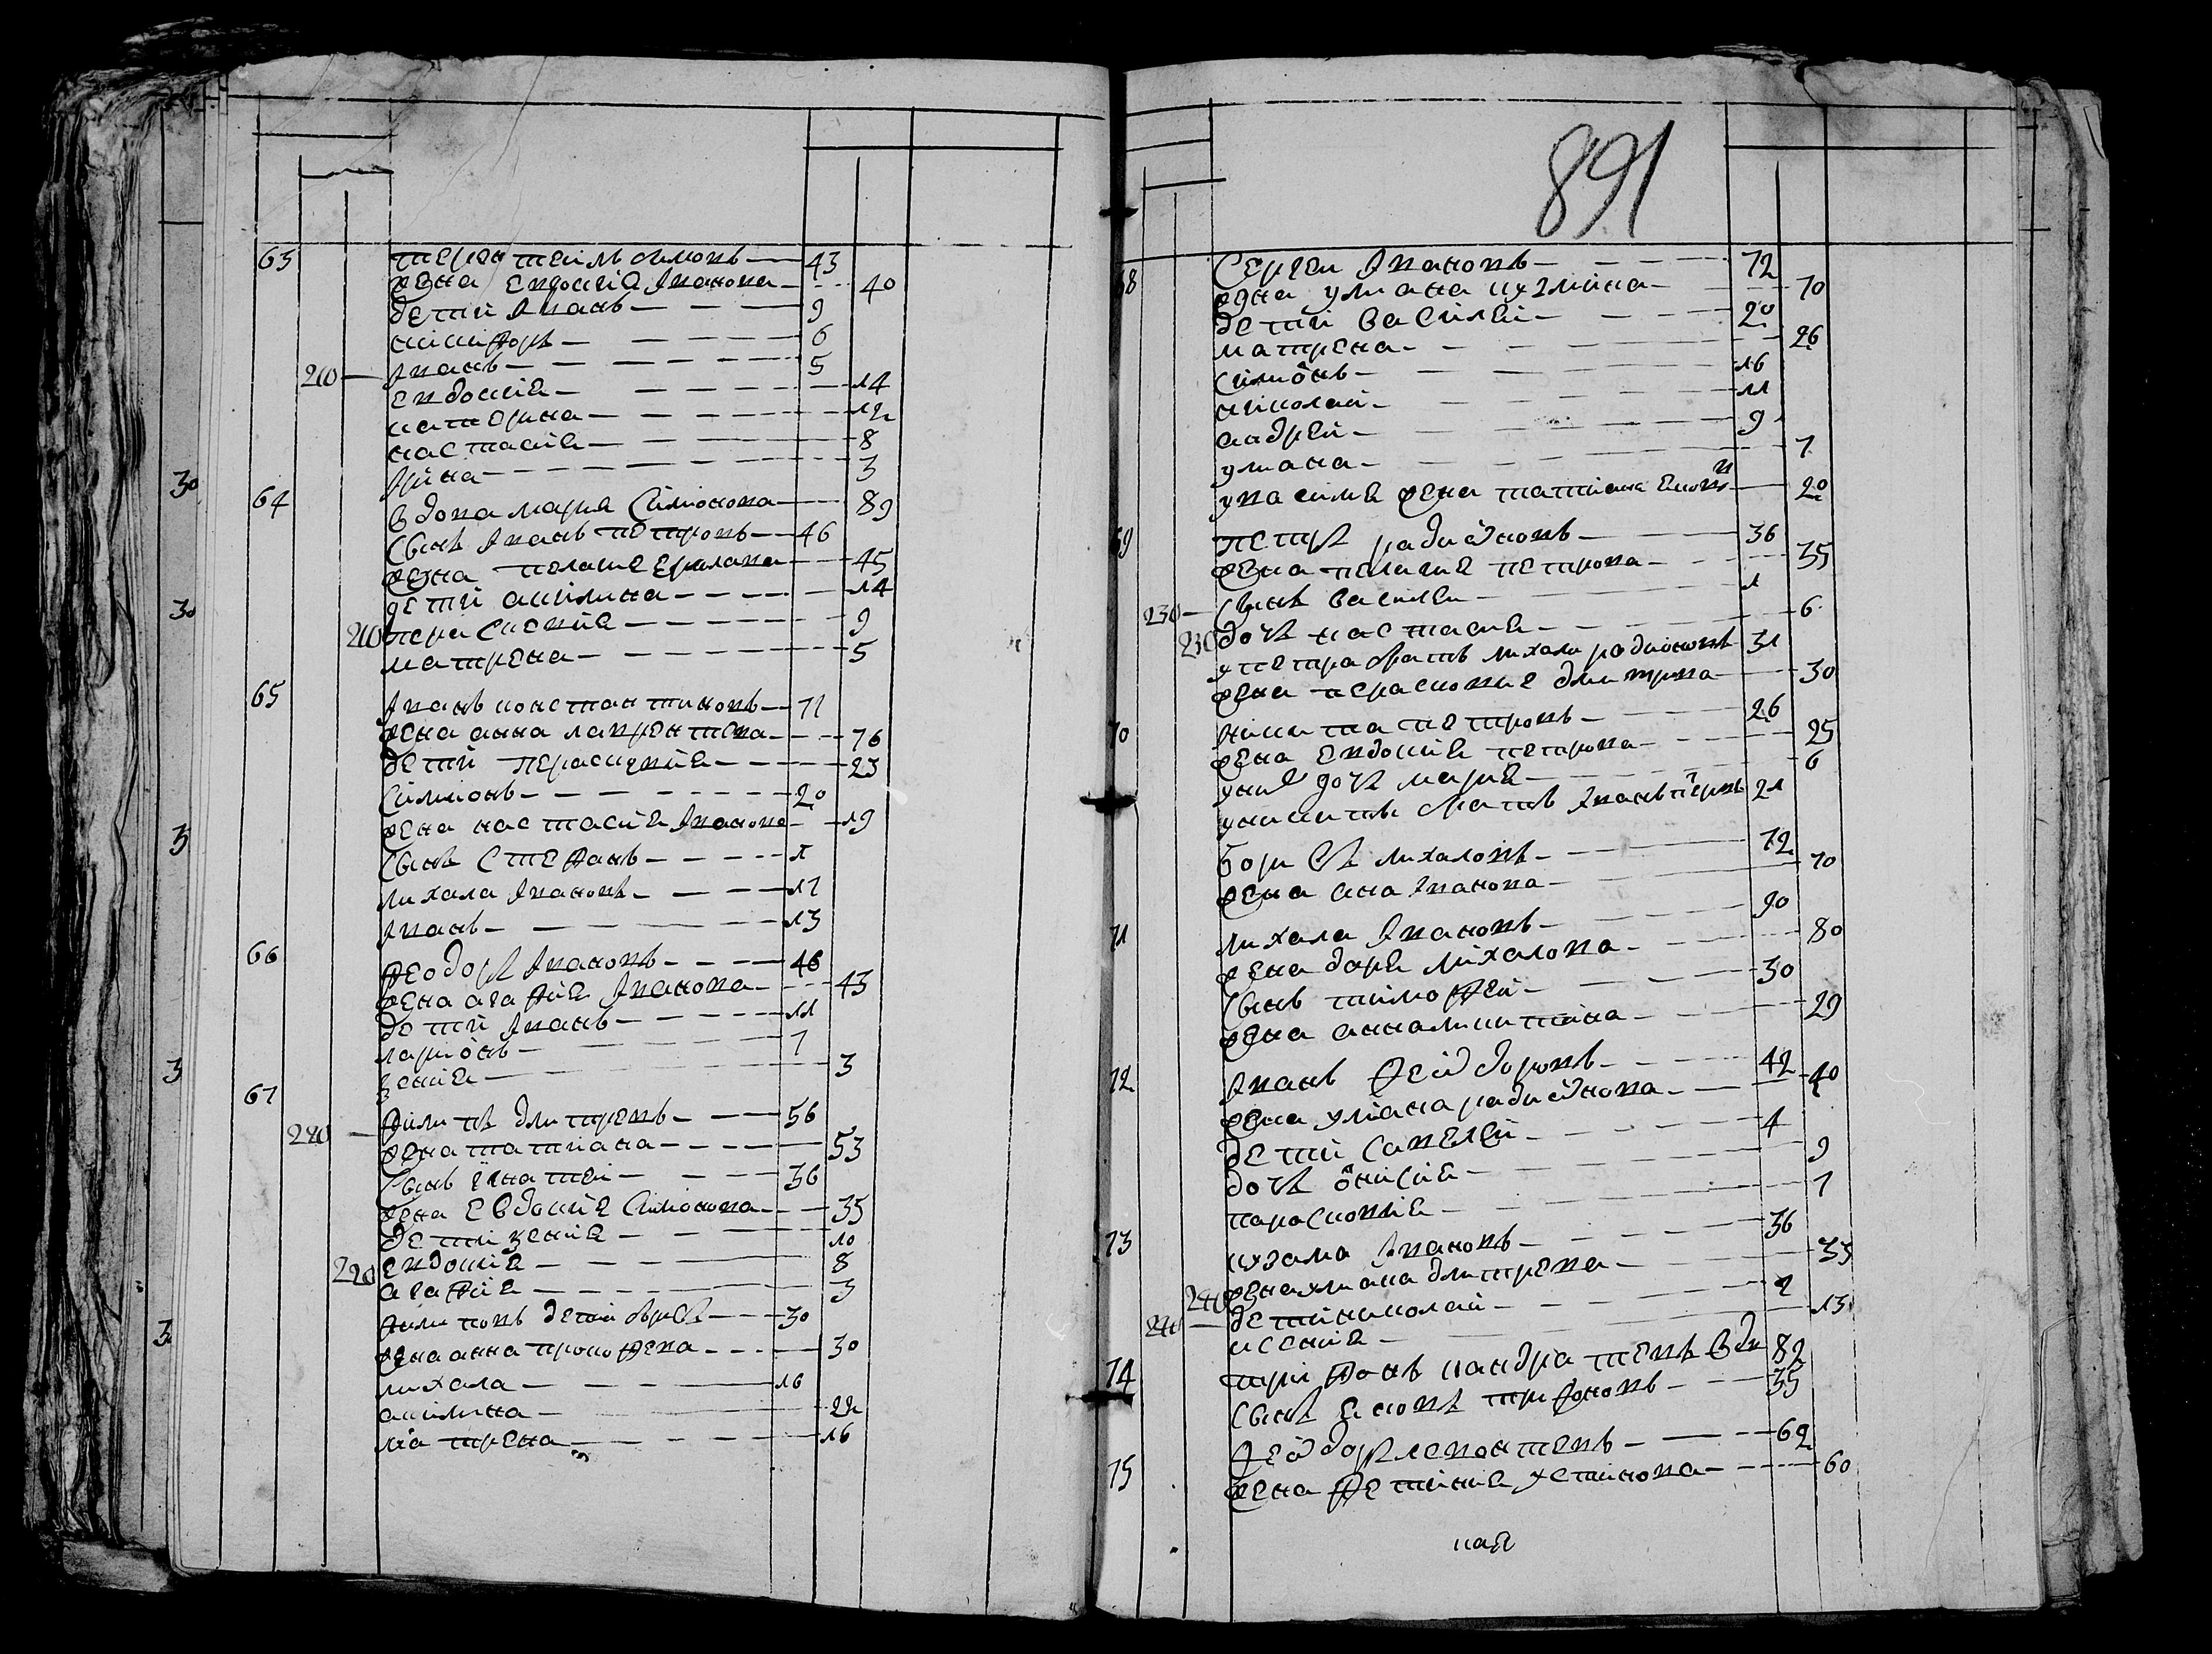 63 терентеи симоновъ 43
жена евдокия иванова 40
дети иванъ 9
никифоръ 6
210 иванъ 5
евдокия 14
катерина 12
настасия 8
ирина 3
64 вдова маря симонова 89
сынъ иванъ петровъ 46
жена пелагия ермолаева 45
дети акилина 14
210 парасковия 9
матрена 5
65 иванъ константиновъ 71
жена анна лаврентева 76
дети парасковия 23
симионъ 20
жена настасия иванова 19
сынъ стефанъ 1
михаила ивановъ 17
иванъ 13
66 феодоръ ивановъ 46
жена агафия иванова 43
дети иванъ 11
ларионъ 7
ксения 3
67 220 филипъ дмитревъ 56
жена татиана 53
сынъ игнатеи 36
жена евдокия симонова 35
дети ксения 10
220 евдокия 8
агафия 3
филиповъ дети борисъ 30
жена анна прокофева 30
михаила 16
акилина 22
матрена 16
891
68 сергеи ивановъ 72
жена улиана кузмина 70
дети василеи 20
матрена 26
симонъ 16
николаи 11
андреи 9
улиана 7
у василия жена татиана 20
69 петръ радионовъ 36
жена пелагия петрова 35
230 сынъ василеи 1
230 дочь настасия 6
у петра братъ михаила радионовъ 31
жена парасковия дмитрева 30
70 никита петровъ 26
жена евдокия петрова 25
у них дочь мария 6
у никиты братъ иванъ 21
борисъ михаиловъ 72
жена анна иванова 70
71 михаила ивановъ 90
жена даря михаилова 80
сынъ тимофеи 30
жена анна микитина 29
72 иванъ феодоровъ 42
жена улиана радионова 40
дети савелеи 4
дочь онисия 9
парасковия 7
73 кузма ивановъ 36
жена улиана дмитрева 33
240 240 дети николаи 2
ксения 13
74 трифонъ кандратевъ вдв 82
сынъ трифоновъ 35
75 феодоръ леонтевъ 62
жена фетиния устинова 60